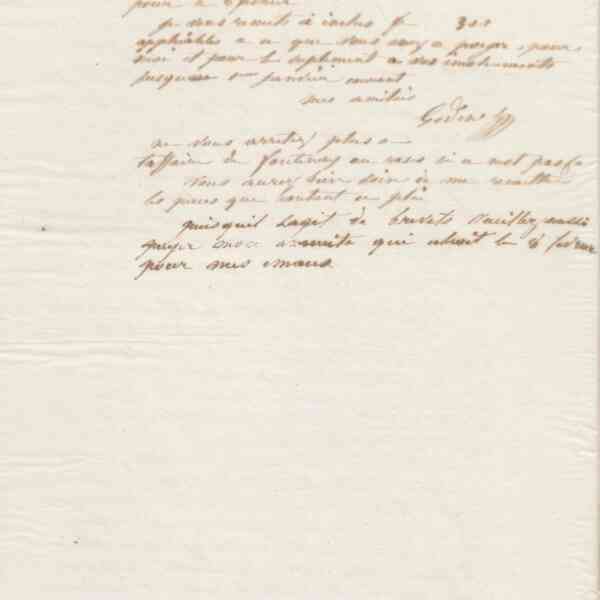 pour
je vous remets ci inclus f 300
applicables a ce que vous avez a payer pour
moi et pour le suplement a vos émoluments
jusques
mes amitiés
Godin
ne vous arretez plus a
laffaire de fontenay ou vass si ce nest pas fe
Vous aurez bien soin de me remettre
les pieces que contient ce pli
puisquil sagit de brevets veuillez aussi
payer mon annuité qui echoit le 8 fevrier
pour mes emaux